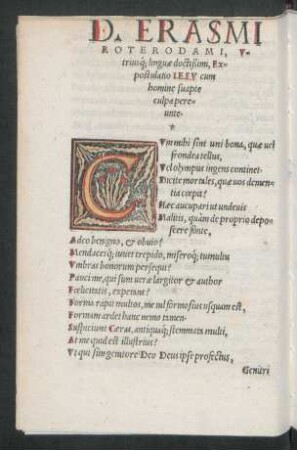 D. ERASMI
ROTERODAMI, V-
triusq; linguæ doctissimi, Ex-
postulatio IESV cum
homine suapte
culpa pere-
unte.
CVm mihi sint uni bona, quæ uel
frondea tellus,
Vel olympus ingens continet
Dicite mortales, quæ uos demen-
tia cœpit?
Hæc aucupari ut undeuis
Malitis, quàm de proprio depo-
scere fonte,
Adeo benigno, & obuio?
Mendaceiq; iuuet trepido, miseroq; tumultu
Vmbras bonorum persequi?
Pauci me, qui sum ueræ largitor & author
Fœlicitatis, expetant?
Forma rapit multos, me nil formosius usquam est,
Formam ardet hanc nemo tamen.
Suspiciunt Ceras, antiquaq; stemmata multi,
At me quid est illustrius?
Vt qui sim genitore Deo Deus ipse profectus,
Genitri